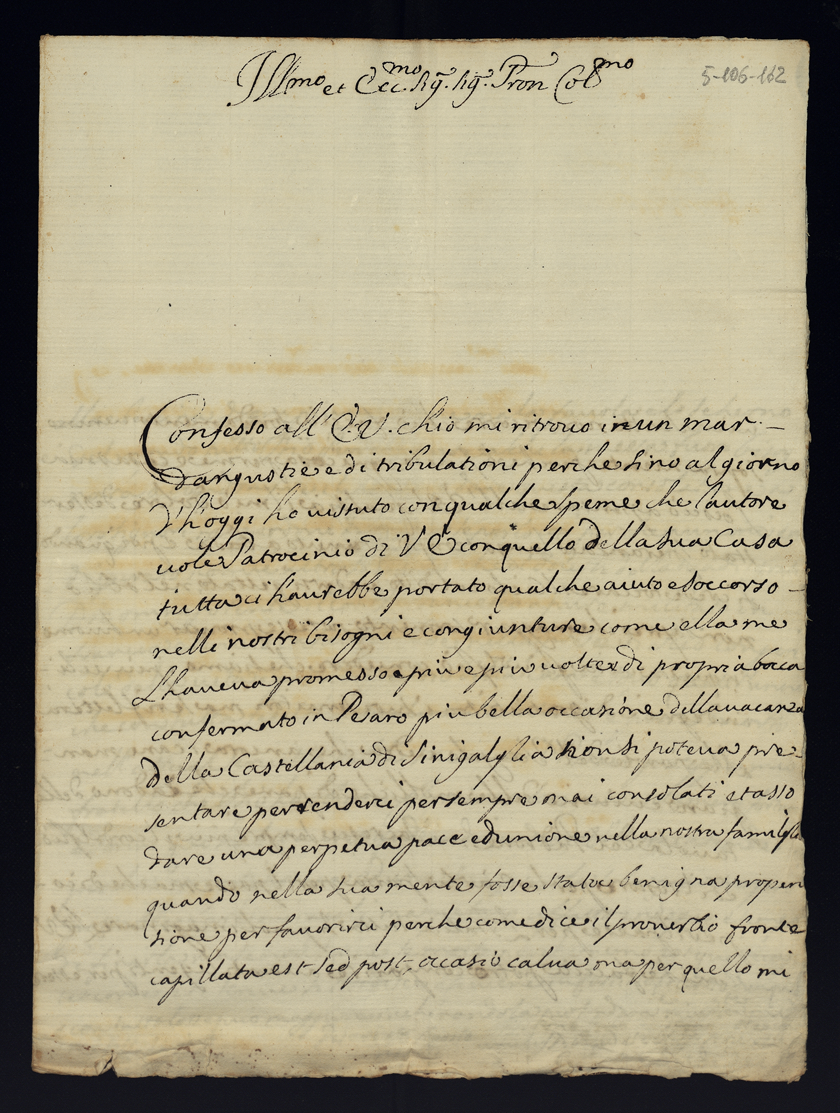 Ill.mo et Ecc.mo Sig. Sig. Pron Col.mo
5-106-162
Confesso all' E.V. ch'io mi ritrovo in un mar
d'angustie e di tribulationi perche sino al giorno
d'hoggi ho vissuto con qualche speme che l'autore
vole Patrocinio di V E con quello della sua Casa
tutta ci haurebbe portato qualche aiuto e soccorso
nelli nostri bisogni e congiunture come ella me
l'haueua promesso e piu e piu uolte di propria bocca
confermato in Pesaro piu bella occasione della uacanza
della Castellania di Sinigalglia non si poteua pre-
sentare per renderci per sempre mai consolati et asso
dare una perpetua pace ed unione nella nostra famiglia
quando nella sua mente fosse stata benigna propen
sione per fauorirci perche come dice il prouerbio fronte
capillata est sed post occasio calua ma per quello mi